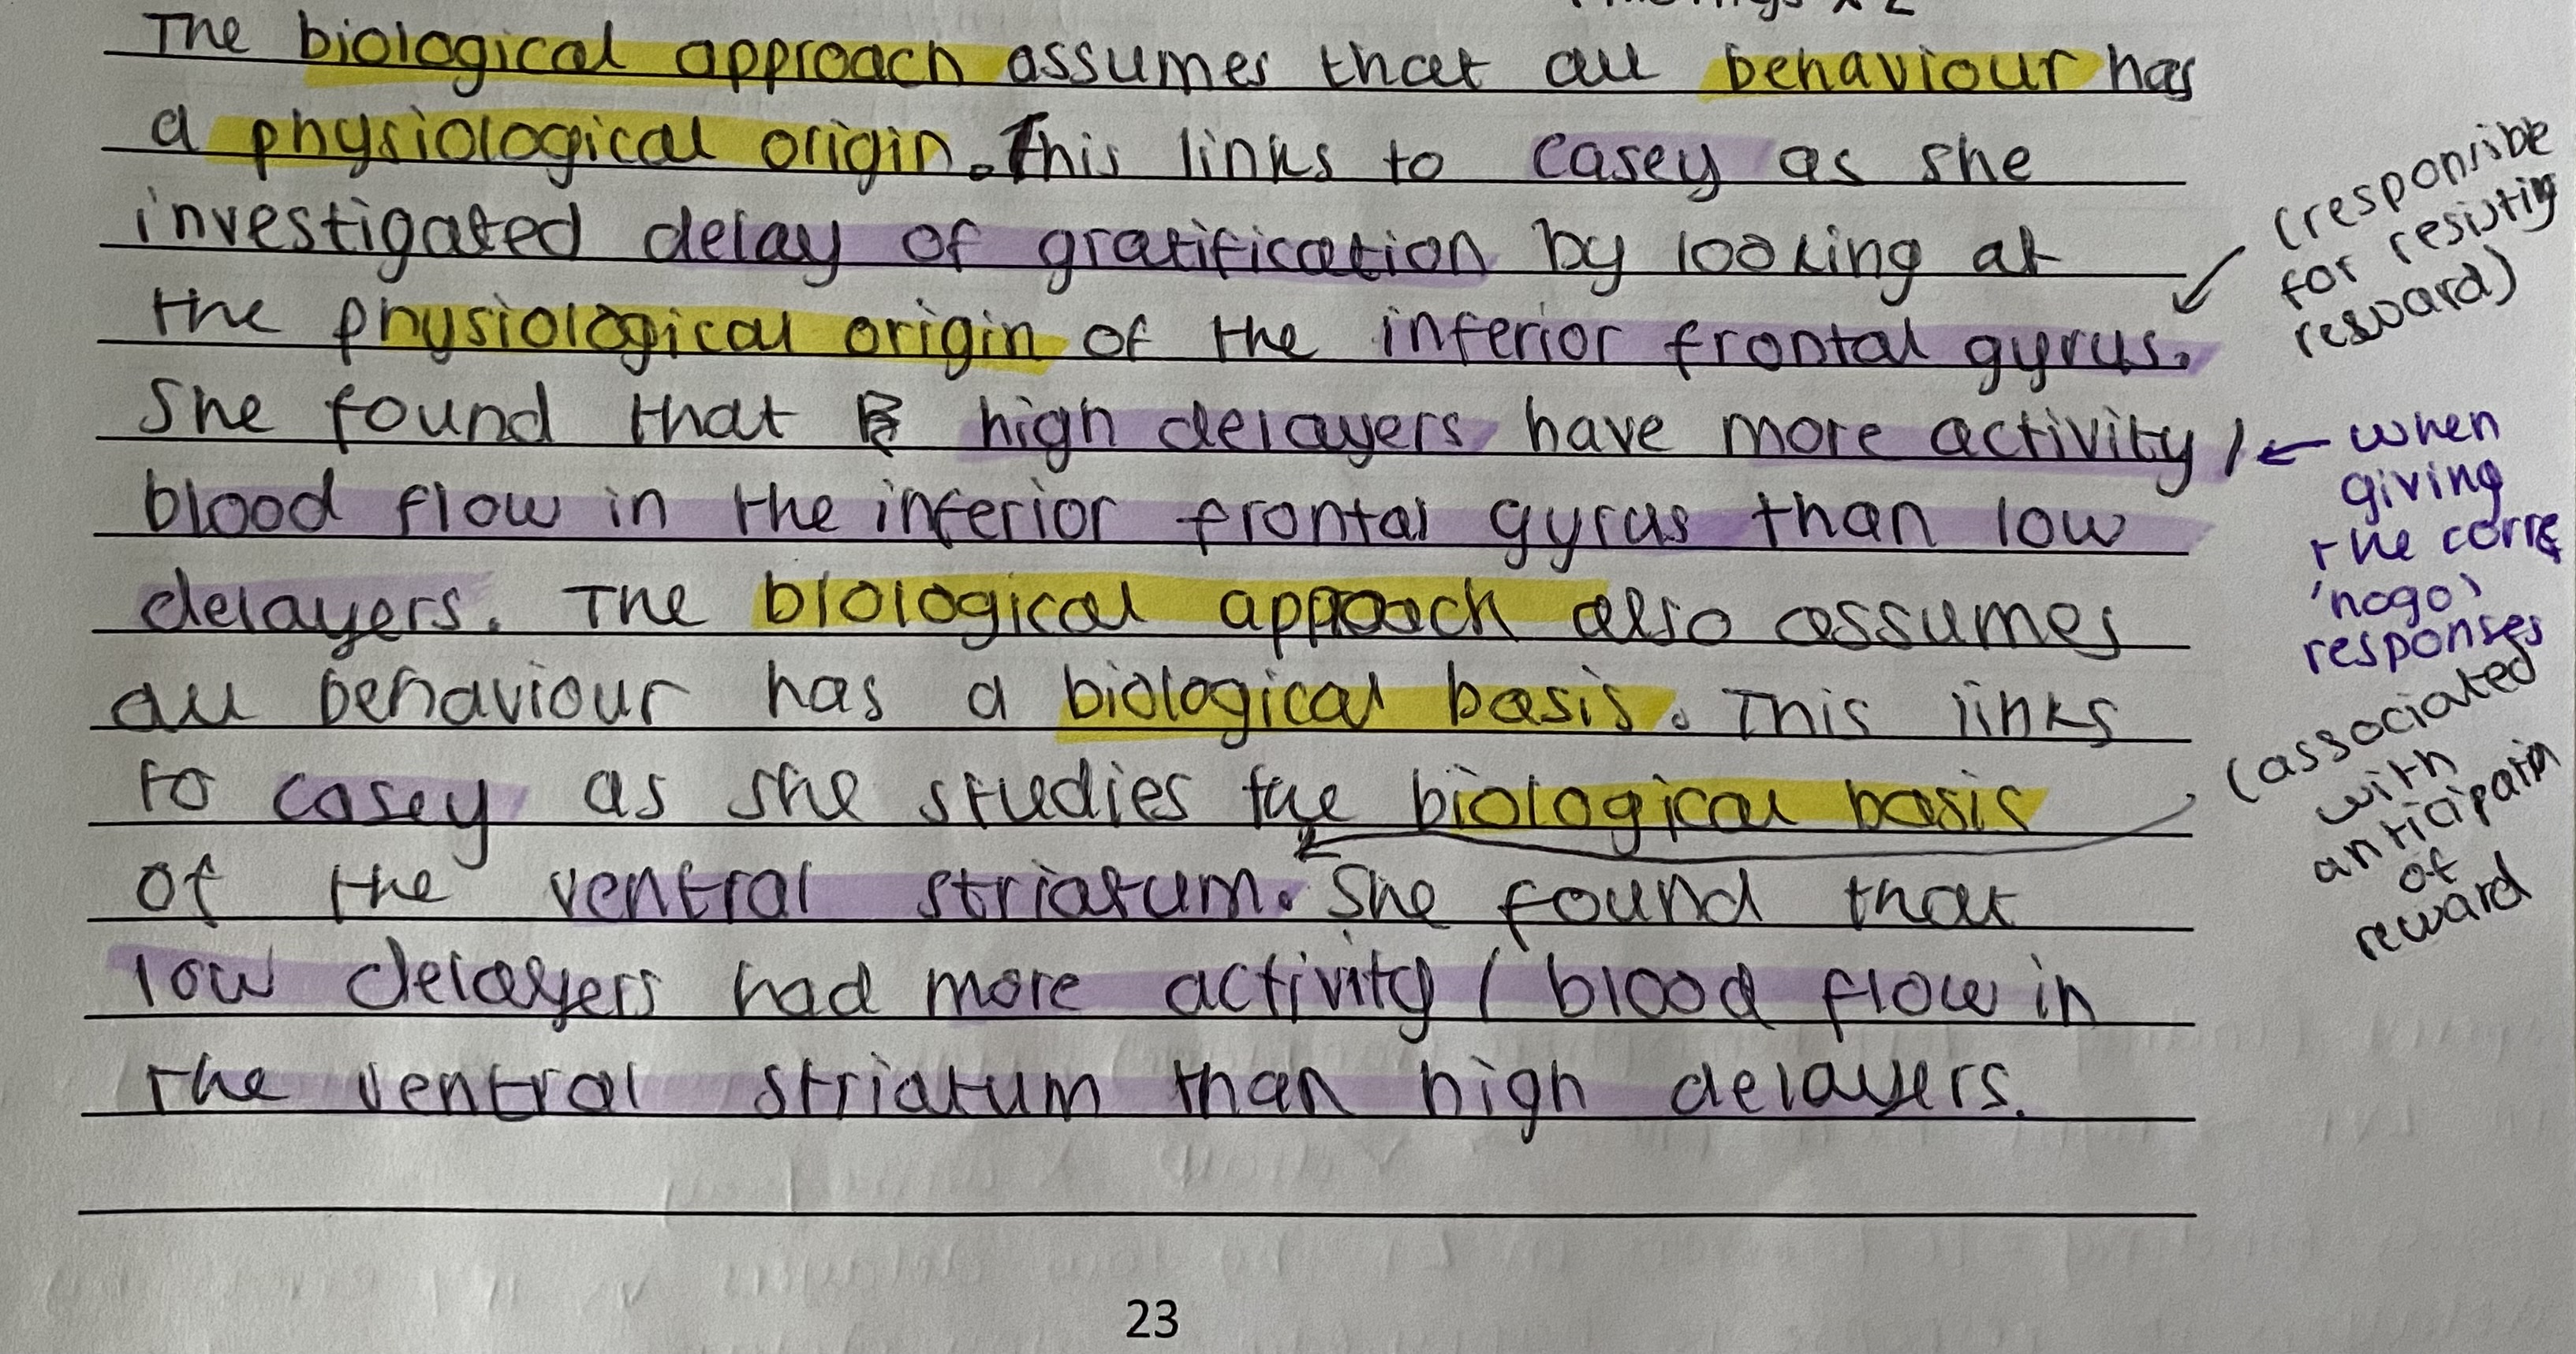 The biological approach assumes that all behaviour has
a physiological origin. This links to casey as she
investigated delay of gratification by looking at
the physiological origin of the inferior frontal gyrus.
(responsible
for resisting
reward)
She found that high delayers have more activity /
← when
giving
the corre
'nogo'
responses
blood flow in the inferior frontal gyrus than low
delayers. The biological approach also assumes
all behaviour has a biological basis. This links
to casey as she studies the biological basis
of the ventral striatum. She found that
(associated
with
anticipatin
of
reward
low delayers had more activity / blood flow in
the ventral striatum than high delayers.
23